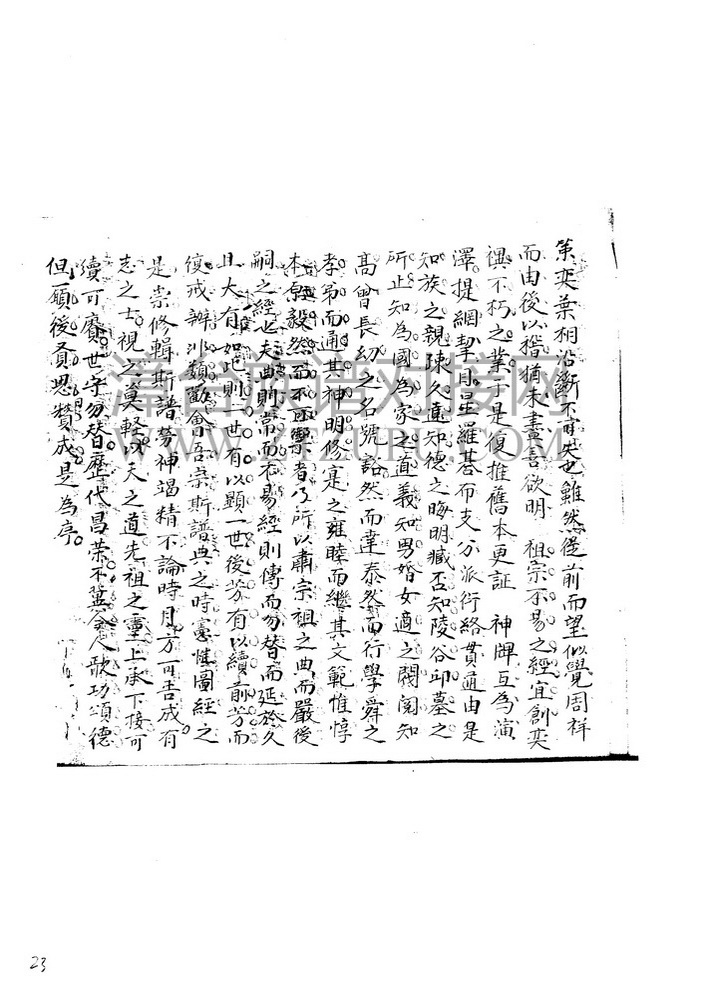 策奕葉相沿斷不昧失也雖然從前而望似覺周祥
而由後以稽猶未盡善欲明 祖宗不易之經宜創奕
禩不朽之業于是復推舊本更証 神牌互為演
澤提綱挈目星羅碁布支分派衍絡貫通由是
知族之親疎久遠知德之晦明臧否知陵谷邱墓之
所止知為國為家之道義知男婚女適之閥閱知
高曾長幼之名號諮然而達泰然而行學舜之
孝弟而通其神明修寔之雍睦而繼其文範惟惇
本原毅然而不可禦者乃所以肅宗祖之典而嚴後
嗣之經也夫典則常而不易經則傳而勿替而延於久
且大有如此則一世有以顯一世後芳有以續前芳而
復戒辦以類勸會吾宗斯譜典之時憲惟圖經之
是崇修輯斯譜勞神竭精不論時月方可告成有
志之士視之莫輕成天之道先祖之靈上承下接可
續可賡世守勿替歷代昌荣不益僉人歌功頌德
但願後賁思贊成是為序
漳台族谱对接网
WWW.ZTZUPU.COM
23